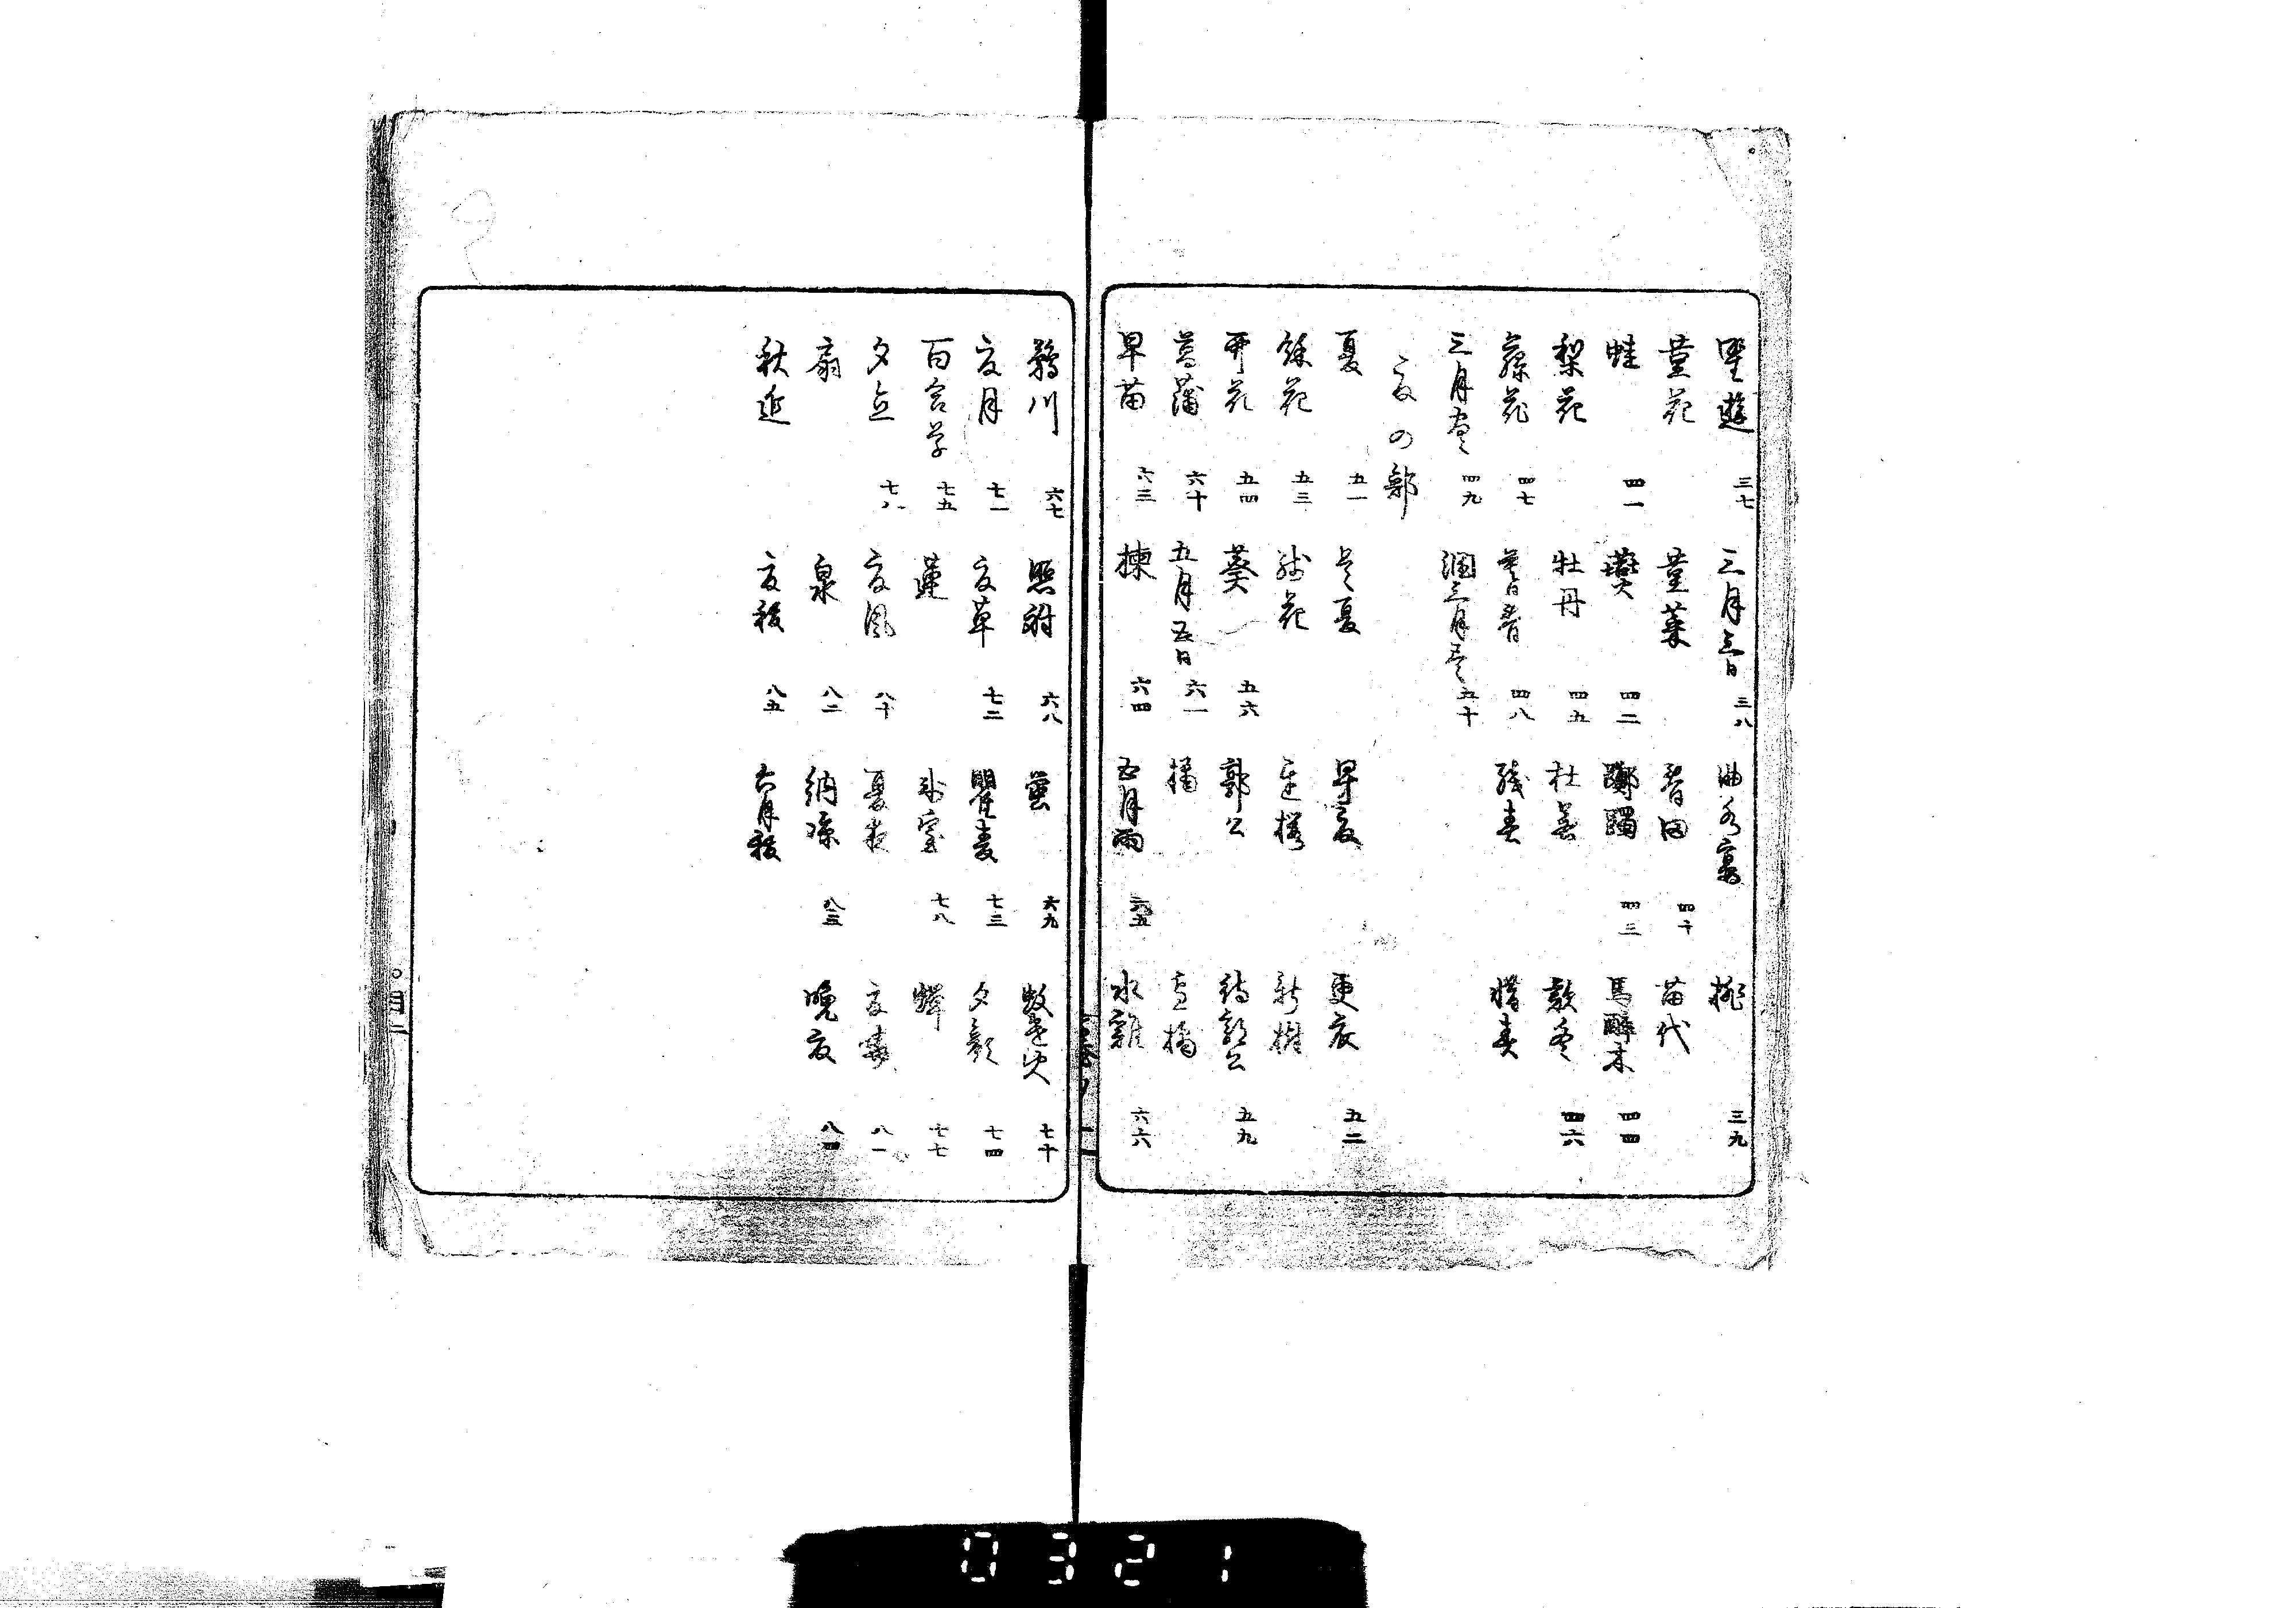 野遊 三七 三月三日 三八 曲水宴 桃 三九
菫花 菫菜 春田 四十 苗代
蛙 四一 躑躅 四三 馬酔木 四四
梨花 牡丹 四五 杜若 款冬 四六
藤花 四七 暮春 四八 残春 惜春
三月尽 四九 潤三月尽 五十
夏の部
夏 五一 首夏 早夏 更衣 五二
餘花 五三 残花 遅桜 新樹
卯花 五四 葵 五六 郭公 待郭公 五九
菖蒲 六十 五月五日 六一 橘 盧橘
早苗 六三 楝 六四 五月雨 六五 水雞 六六
鵜川 六七 照射 六八 蛍 六九 蚊遣火 七十
夏月 七一 夏草 七二 瞿麦 七三 夕顔 七四
百合草 七五 蓮 氷室 七八 蝉 七七
夕立 七八 夏風 八十 夏衣 八一
扇 泉 八二 納凉 八三 晩夏 八四
秋近 夏祓 八五 六月祓
目二
0321